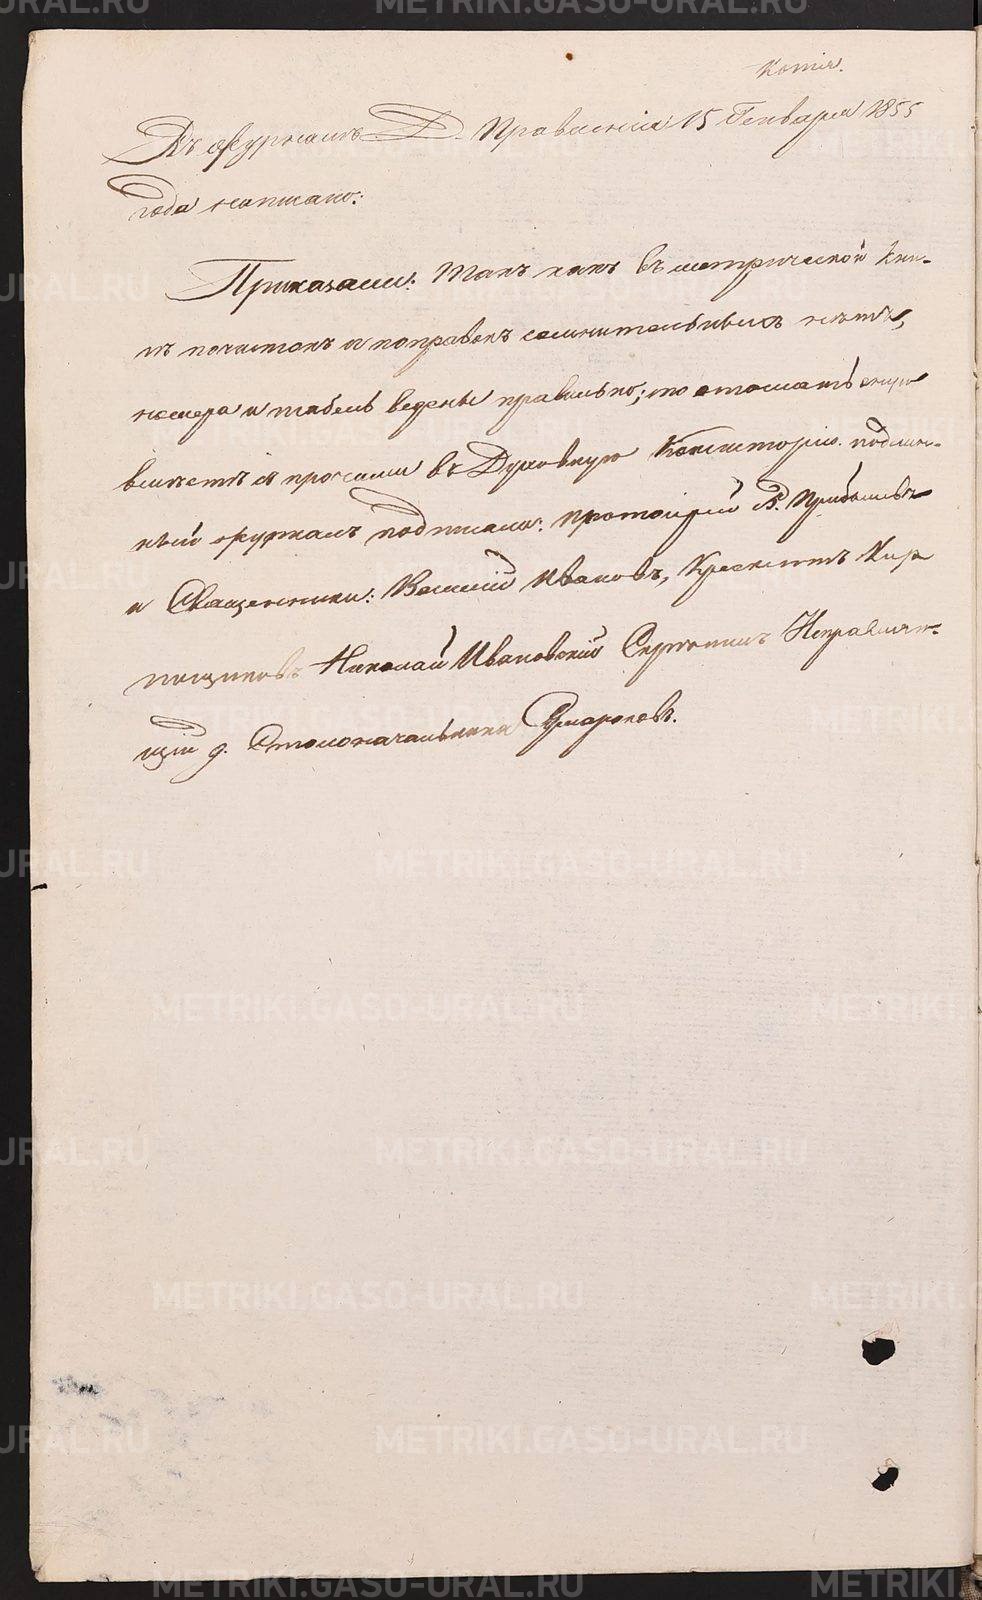 Копія.
Въ журналѣ Д. Правленія 15 Генваря 1855
года написано:
Приказали: Такъ какъ въ метрической кни-
гѣ почистокъ и поправокъ сомнительныхъ нѣтъ,
номера и табель ведены правильно; то отослать оную
вмѣстѣ съ прочими въ Духовную Консисторію. подлин-
ный журналъ подписали: протоіерей
и Священники: Василій Ивановъ, Крискентъ Кир
пищиковъ Николай Ивановскій Скрѣпилъ Исправляю-
щій д. Столоначальника Сумароковъ.
METRIKI.GASO-URAL.RU